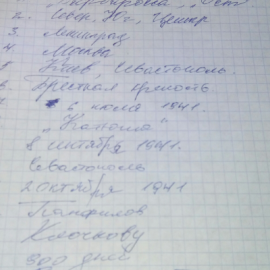 2. Север, Юг, Центр
3. Ленинград
4 Москва
5 Киев, Севастополь.
6 Брестская крепость
7 6 июля 1941.
"Катюша"
8 сентября 1941.
Севастополь
2 октября 1941
Панфилов
Клочкову
900 дней